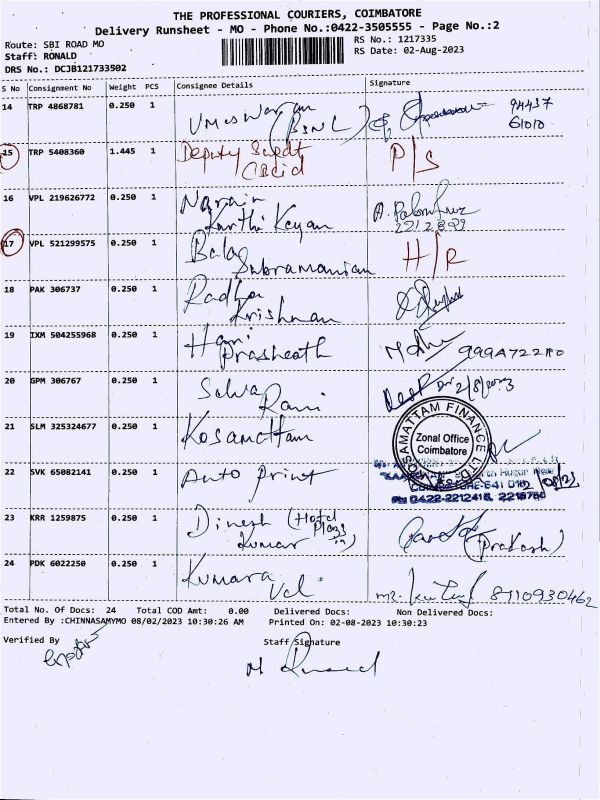 THE PROFESSIONAL COURIERS, COIMBATORE
Delivery Runsheet - MO - Phone No.:0422-3505555 - Page No.:2
Route: SBI ROAD MO
RS No.: 1217335
Staff: RONALD
RS Date: 02-Aug-2023
DRS No.: DCJB121733502
S No Consignment No Weight PCS Consignee Details Signature
14 TRP 4868781 0.250 1 Umeswaran (BSNL) 94437 61010
15 TRP 5408360 1.445 1 Deputy Supdt P/S
16 VPL 219626772 0.250 1 Narain Karthi Keyan
17 VPL 521299575 0.250 1 Bala Subramanian H/R
18 PAK 306737 0.250 1 Radha Krishnan
19 IXM 504255968 0.250 1 Hari Prasheath
20 GPM 306767 0.250 1 Selva Rani 2/8/2023
21 SLM 325324677 0.250 1 Kosamattam
KOSAMATTAM FINANCE LTD
Zonal Office
Coimbatore
22 SVK 65082141 0.250 1 Auto Print
COIMBATORE-641 012
Ph 0422-2212415, 2215760
23 KRR 1259875 0.250 1 Dinesh Kumar (Hotel (Prakash)
24 PDK 6022250 0.250 1 Kumara Vel 8110930462
Total No. Of Docs: 24 Total COD Amt: 0.00 Delivered Docs: Non Delivered Docs:
Entered By :CHINNASAMYMO 08/02/2023 10:30:26 AM Printed On: 02-08-2023 10:30:23
Verified By Staff Signature